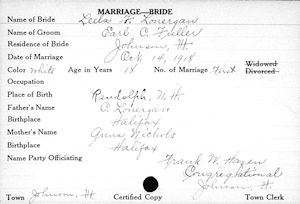 MARRIAGE—BRIDE
Name of Bride Leila F. Lonergan
Name of Groom Earl C. Fuller
Residence of Bride Johnson, Vt
Date of Marriage Oct. 14, 1918
Color White Age in Years 18 No. of Marriage First Widowed Divorced
Occupation
Place of Birth Randolph, N.H.
Father's Name C. Lonergan
Birthplace Halifax
Mother's Name Anna Nichols
Birthplace Halifax
Name Party Officiating Frank W. Hazen
Congregational
Johnson, Vt.
Town Johnson, Vt Certified Copy Town Clerk